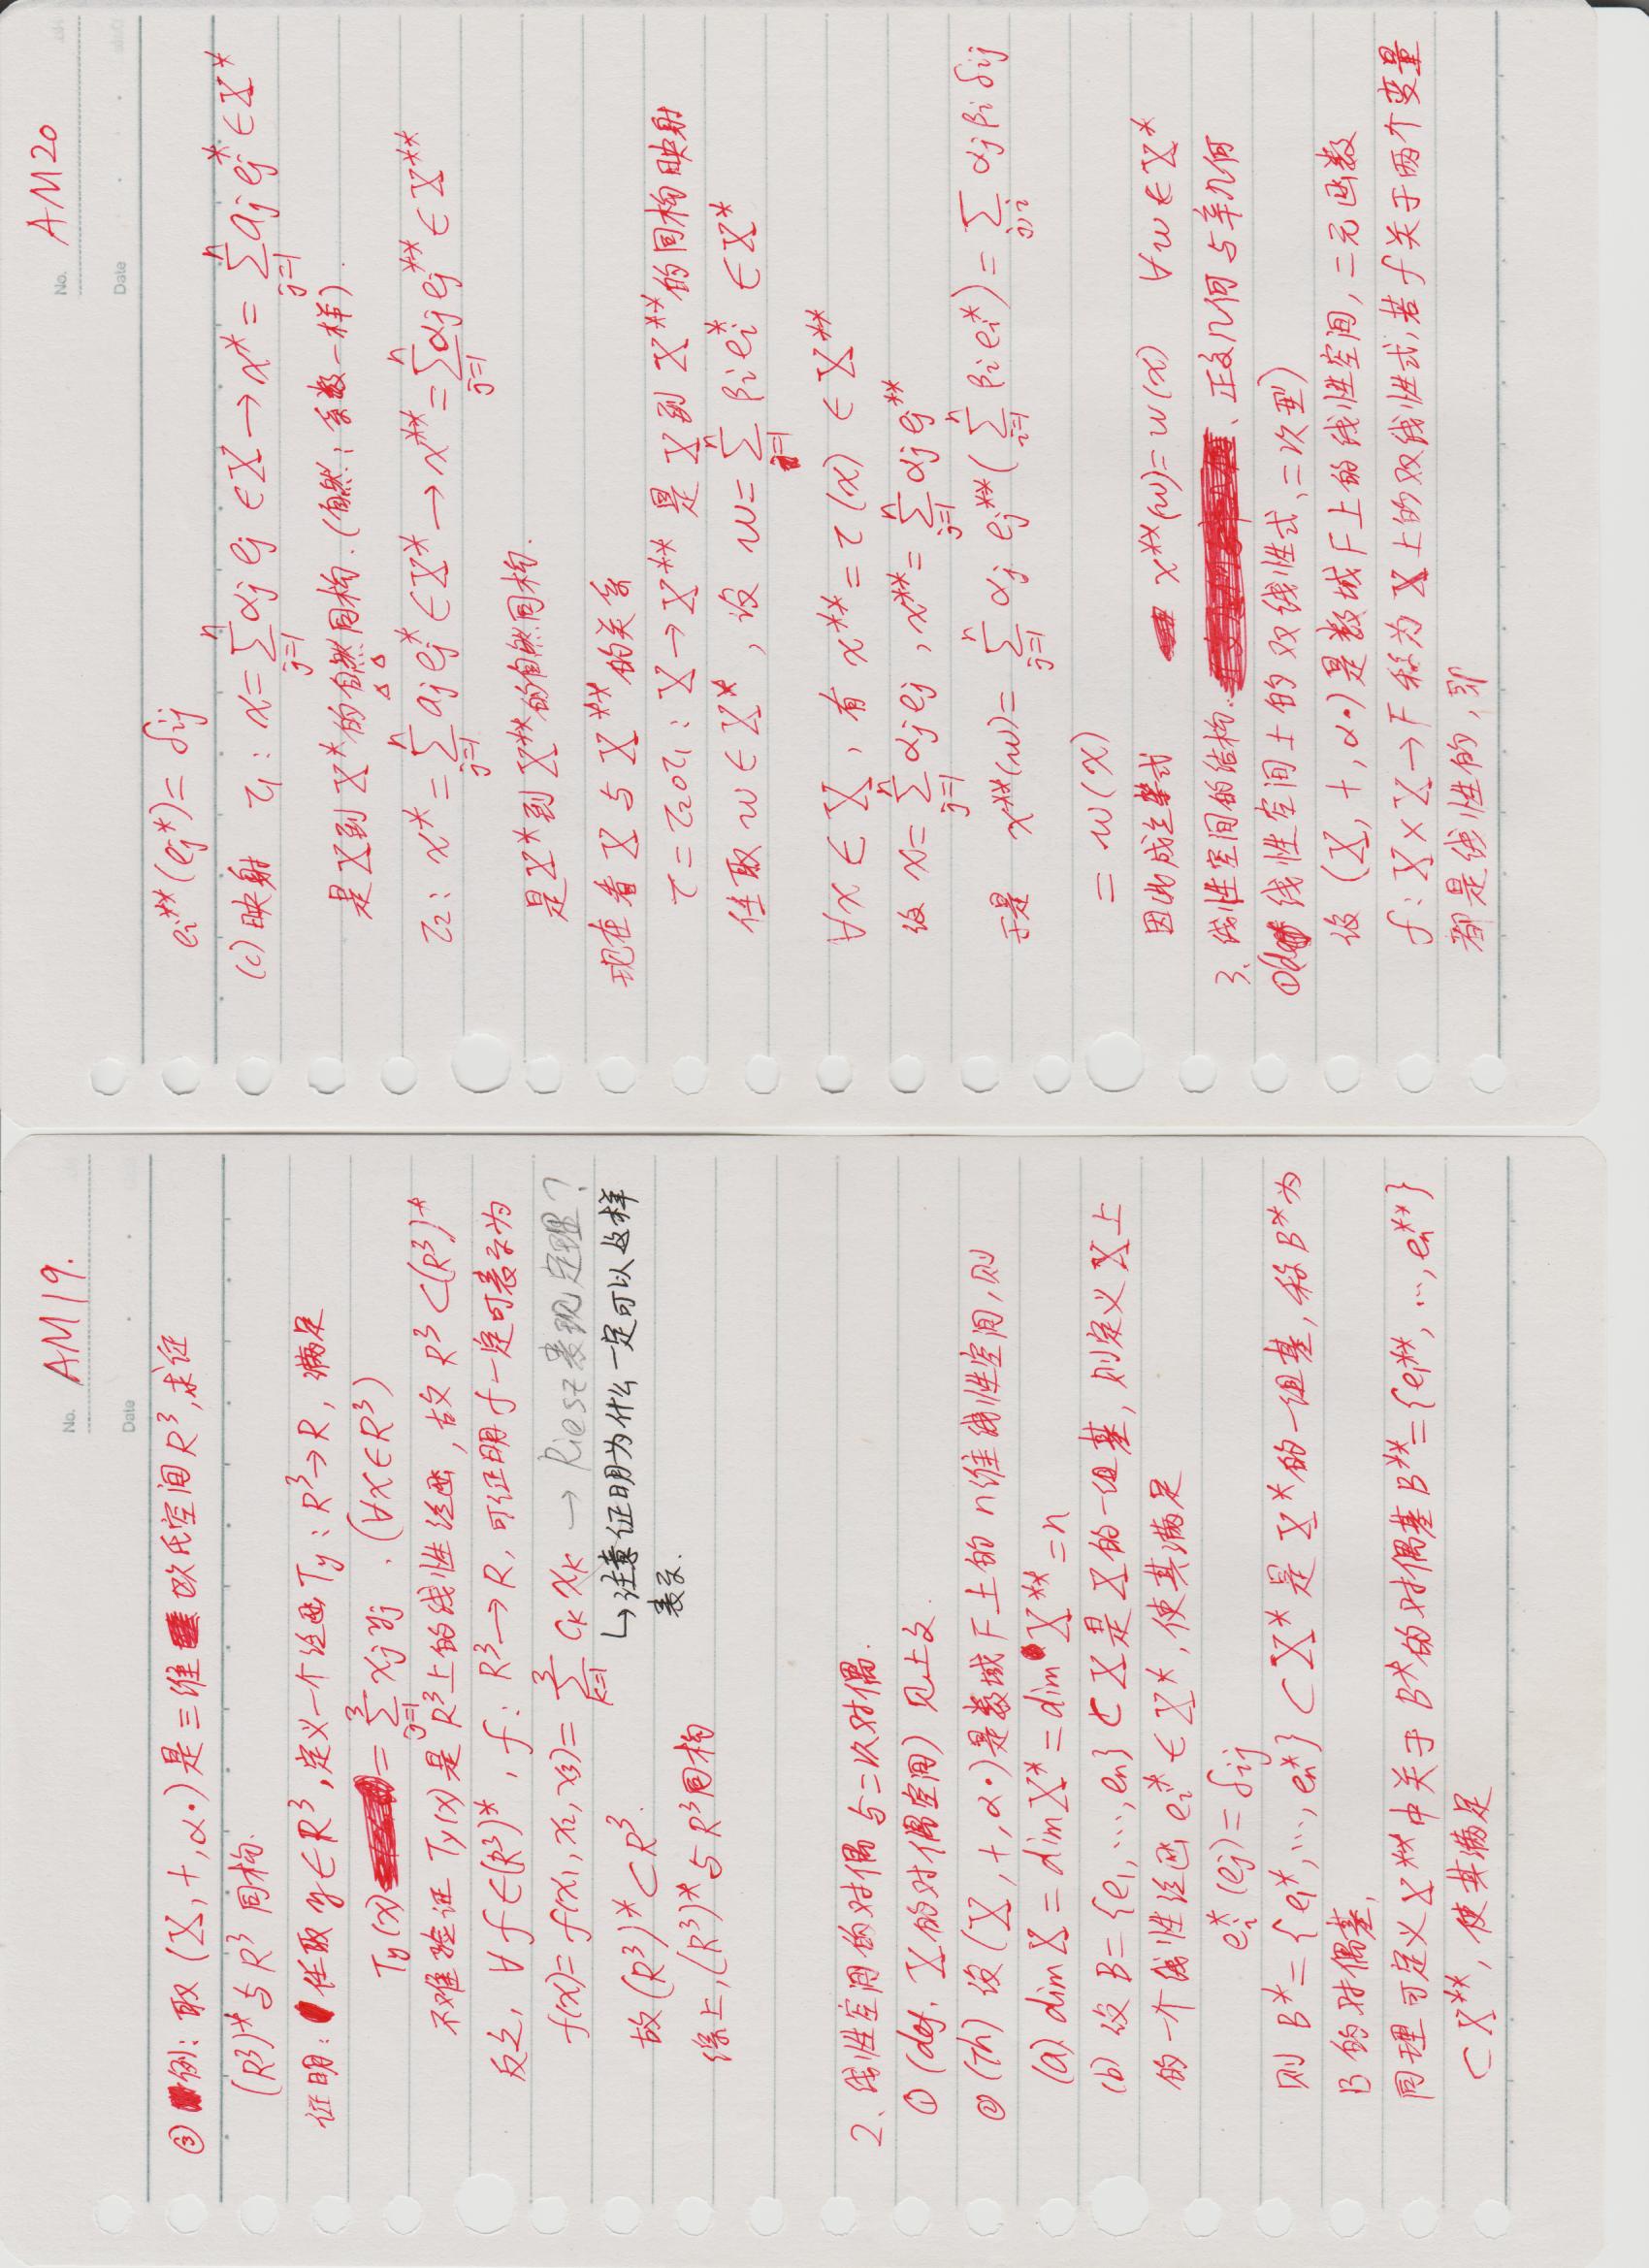 No. AM19.
Date
③ 例: 取 (X, +, α·) 是三维 欧氏空间 R³, 求证
(R³)* 与 R³ 同构.
证明: 任取 y∈R³, 定义一个泛函 Ty: R³→R, 满足
Ty(x) = ∑_{j=1}^{3} xj yj . (∀x∈R³)
不难验证 Ty(x) 是 R³上的线性泛函, 故 R³⊂(R³)*
反之, ∀f∈(R³)*, f: R³→R, 可证明 f 一定可表示为
f(x)= f(x1, x2, x3)= ∑_{k=1}^{3} ck xk → Riesz表现定理?
↳注意证明为什么一定可以这样
表示.
故 (R³)*⊂R³.
综上, (R³)* 与 R³同构
2、线性空间的对偶与二次对偶.
① (def. X的对偶空间) 见上文.
② (Th) 设 (X, +, α·) 是数域 F 上的 n维线性空间, 则
(a). dim X = dim X* = dim X** = n
(b) 设 B = {e1, ..., en} ⊂ X 是 X 的一组基, 则定义 X 上
的一个线性泛函 ei* ∈ X*, 使其满足
ei*(ej) = δij
则 B* = {e1*, ..., en*} ⊂ X* 是 X* 的一组基, 称 B* 为
B 的对偶基,
同理可定义 X** 中关于 B* 的对偶基 B** = {e1**, ..., en**}
⊂ X**, 使其满足
No. AM20
Date
ei**(ej*) = δij
(c) 映射 τ1: x = ∑_{j=1}^{n} αj ej ∈ X → x* = ∑_{j=1}^{n} aj ej* ∈ X*
是 X 到 X* 的自然同构. (自然: 系数一样).
τ2: x* = ∑_{j=1}^{n} aj ej* ∈ X* → x** = ∑_{j=1}^{n} αj ej** ∈ X**
是 X* 到 X** 的自然同构.
现在看 X 与 X** 的关系
τ = τ2∘τ1: X → X** 是 X 到 X** 的同构映射
任取 w ∈ X*, 设 w = ∑_{i=1}^{n} βi ei* ∈ X*
∀x ∈ X, 有 x** = τ(x) ∈ X**
设 x = ∑_{j=1}^{n} αj ej, x** = ∑_{j=1}^{n} αj ej**
于是 x**(w) = ∑_{j=1}^{n} αj ej**(∑_{i=1}^{n} βi ei*) = ∑_{j,i} αj βi δij
= w(x)
因此成立等式 x**(w) = w(x) ∀w ∈ X*
3、线性空间的结构. 、正交几何与辛几何
①(def 线性空间上的双线性式、二次型)
设 (X, +, α·) 是数域 F 上的线性空间, 二元函数
f: X×X→F 称为 X 上的双线性式, 若 f 关于两个变量
都是线性的, 即